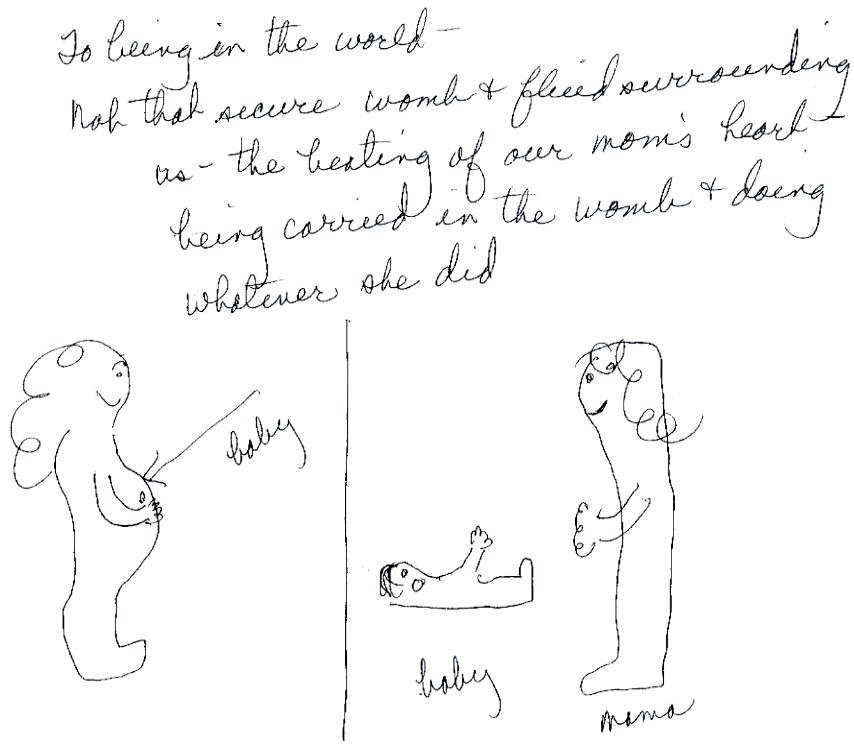 To being in the world –
Not that secure womb & fluid surrounding
us – the beating of our mom's heart –
being carried in the womb & doing
whatever she did
baby
baby
mama